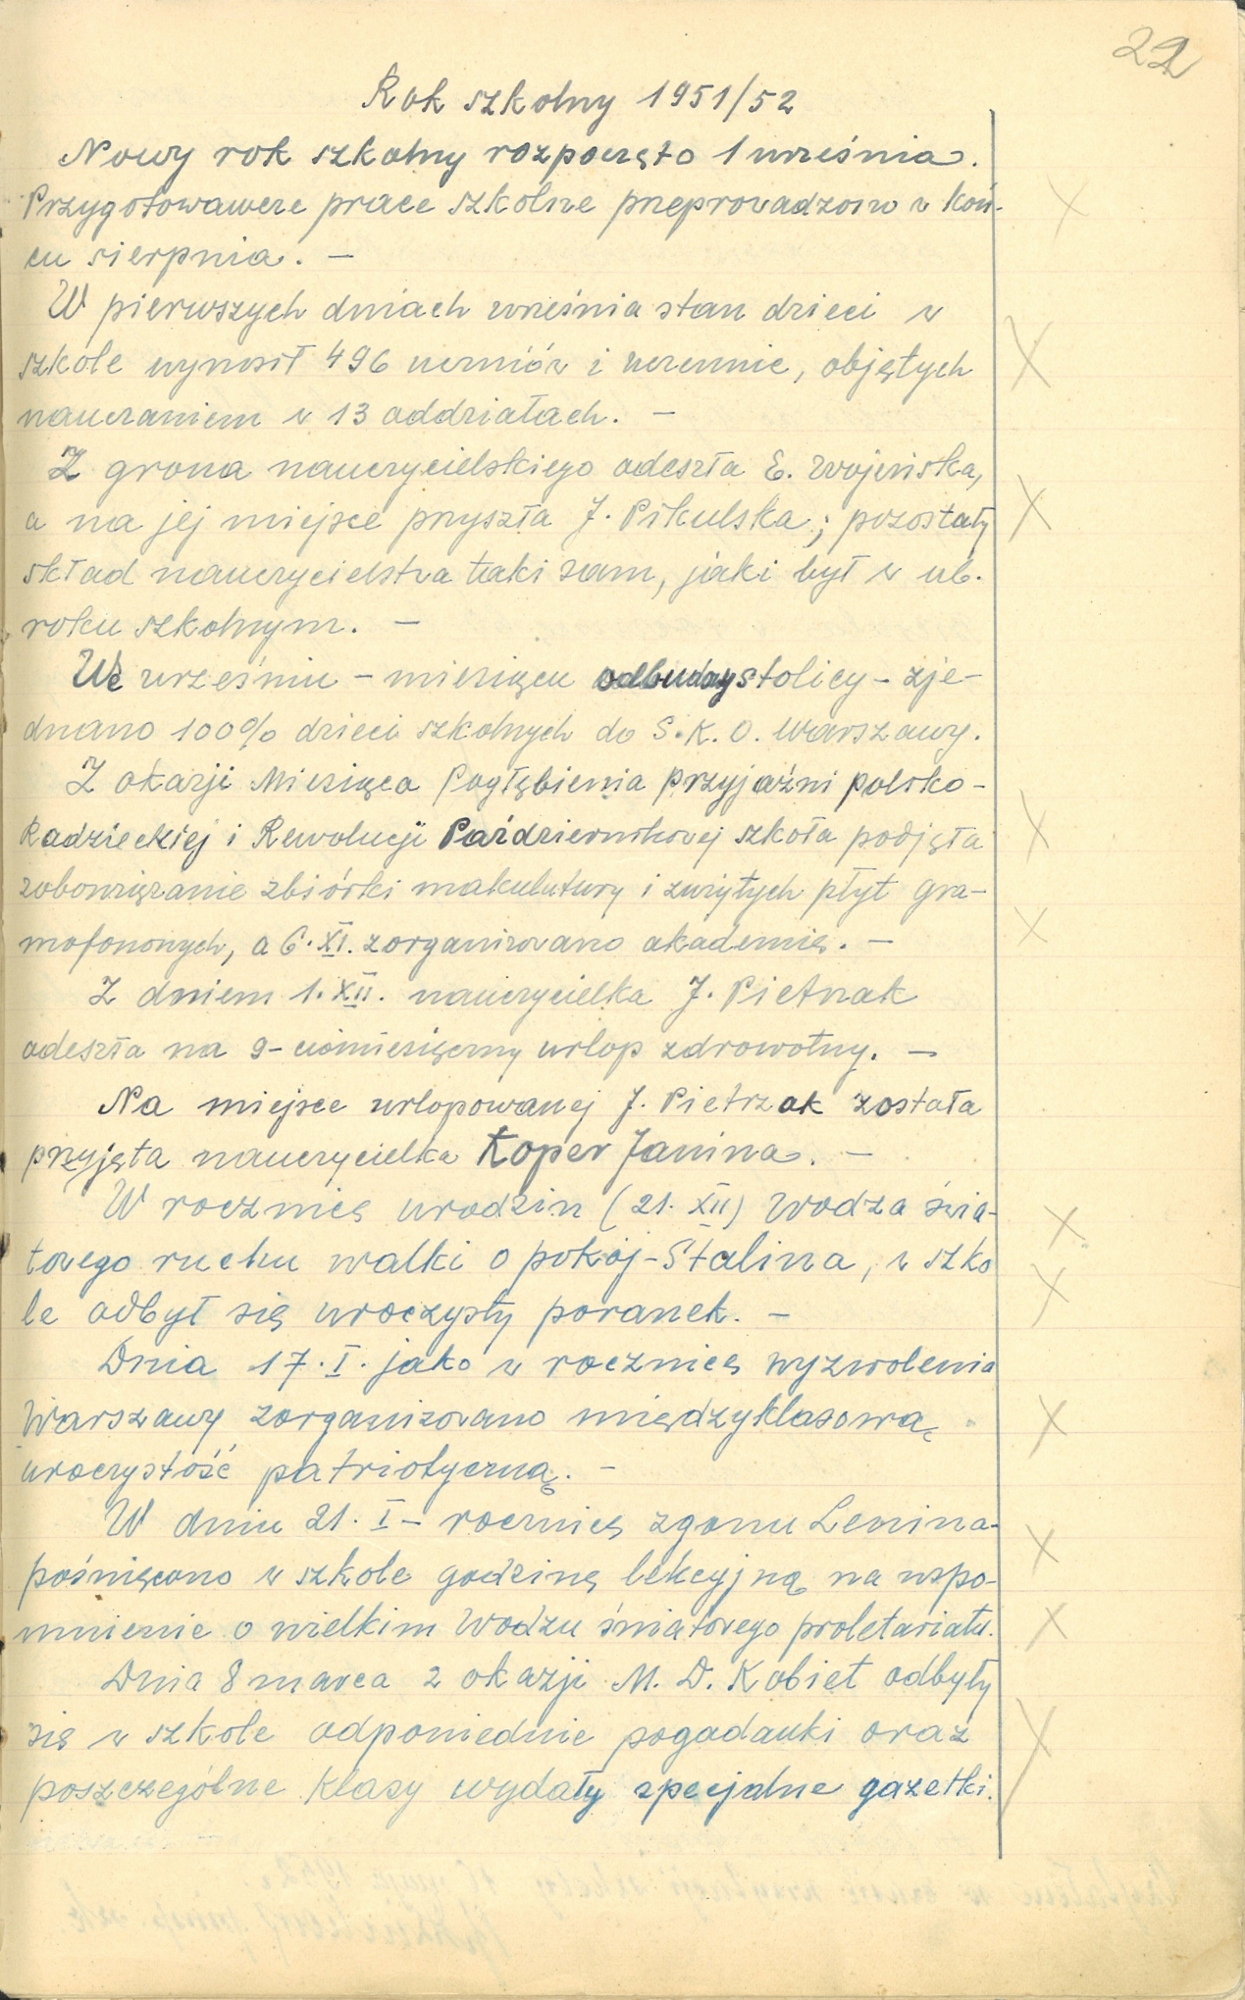 22
Rok szkolny 1951/52
Nowy rok szkolny rozpoczęto 1 września.
Przygotowawcze prace szkolne przeprowadzono w koń-
cu sierpnia. –
W pierwszych dniach września stan dzieci w
szkole wynosił 496 uczniów i uczennic, objętych
nauczaniem w 13 oddziałach. –
Z grona nauczycielskiego odeszła E. Wojeńska,
a na jej miejsce przyszła J. Pikulska; pozostały
skład nauczycielstwa taki sam, jaki był w ub.
roku szkolnym. –
We wrześniu – miesiącu odbudowy stolicy – zje-
dnano 100% dzieci szkolnych do S.K.O. Warszawy.
Z okazji Miesiąca Pogłębienia Przyjaźni polsko-
Radzieckiej i Rewolucji Październikowej szkoła podjęła
zobowiązanie zbiórki makulatury i zużytych płyt gra-
mofonowych, a 6.XI. zorganizowano akademię. –
Z dniem 1.XII. nauczycielka J. Pietrzak
odeszła na 9-ciomiesięczny urlop zdrowotny. –
Na miejsce urlopowanej J. Pietrzak została
przyjęta nauczycielka Koper Janina. –
W rocznicę urodzin (21.XII) Wodza świa-
towego ruchu walki o pokój – Stalina, w szko
le odbył się uroczysty poranek. –
Dnia 17.I. jako w rocznicę wyzwolenia
Warszawy zorganizowano międzyklasową
uroczystość patriotyczną. –
W dniu 21.I – rocznicę zgonu Lenina –
poświęcono w szkole godzinę lekcyjną na wspo-
mnienie o wielkim Wodzu światowego proletariatu.
Dnia 8 marca z okazji M. D. Kobiet odbyły
się w szkole odpowiednie pogadanki oraz
poszczególne klasy wydały specjalne gazetki.